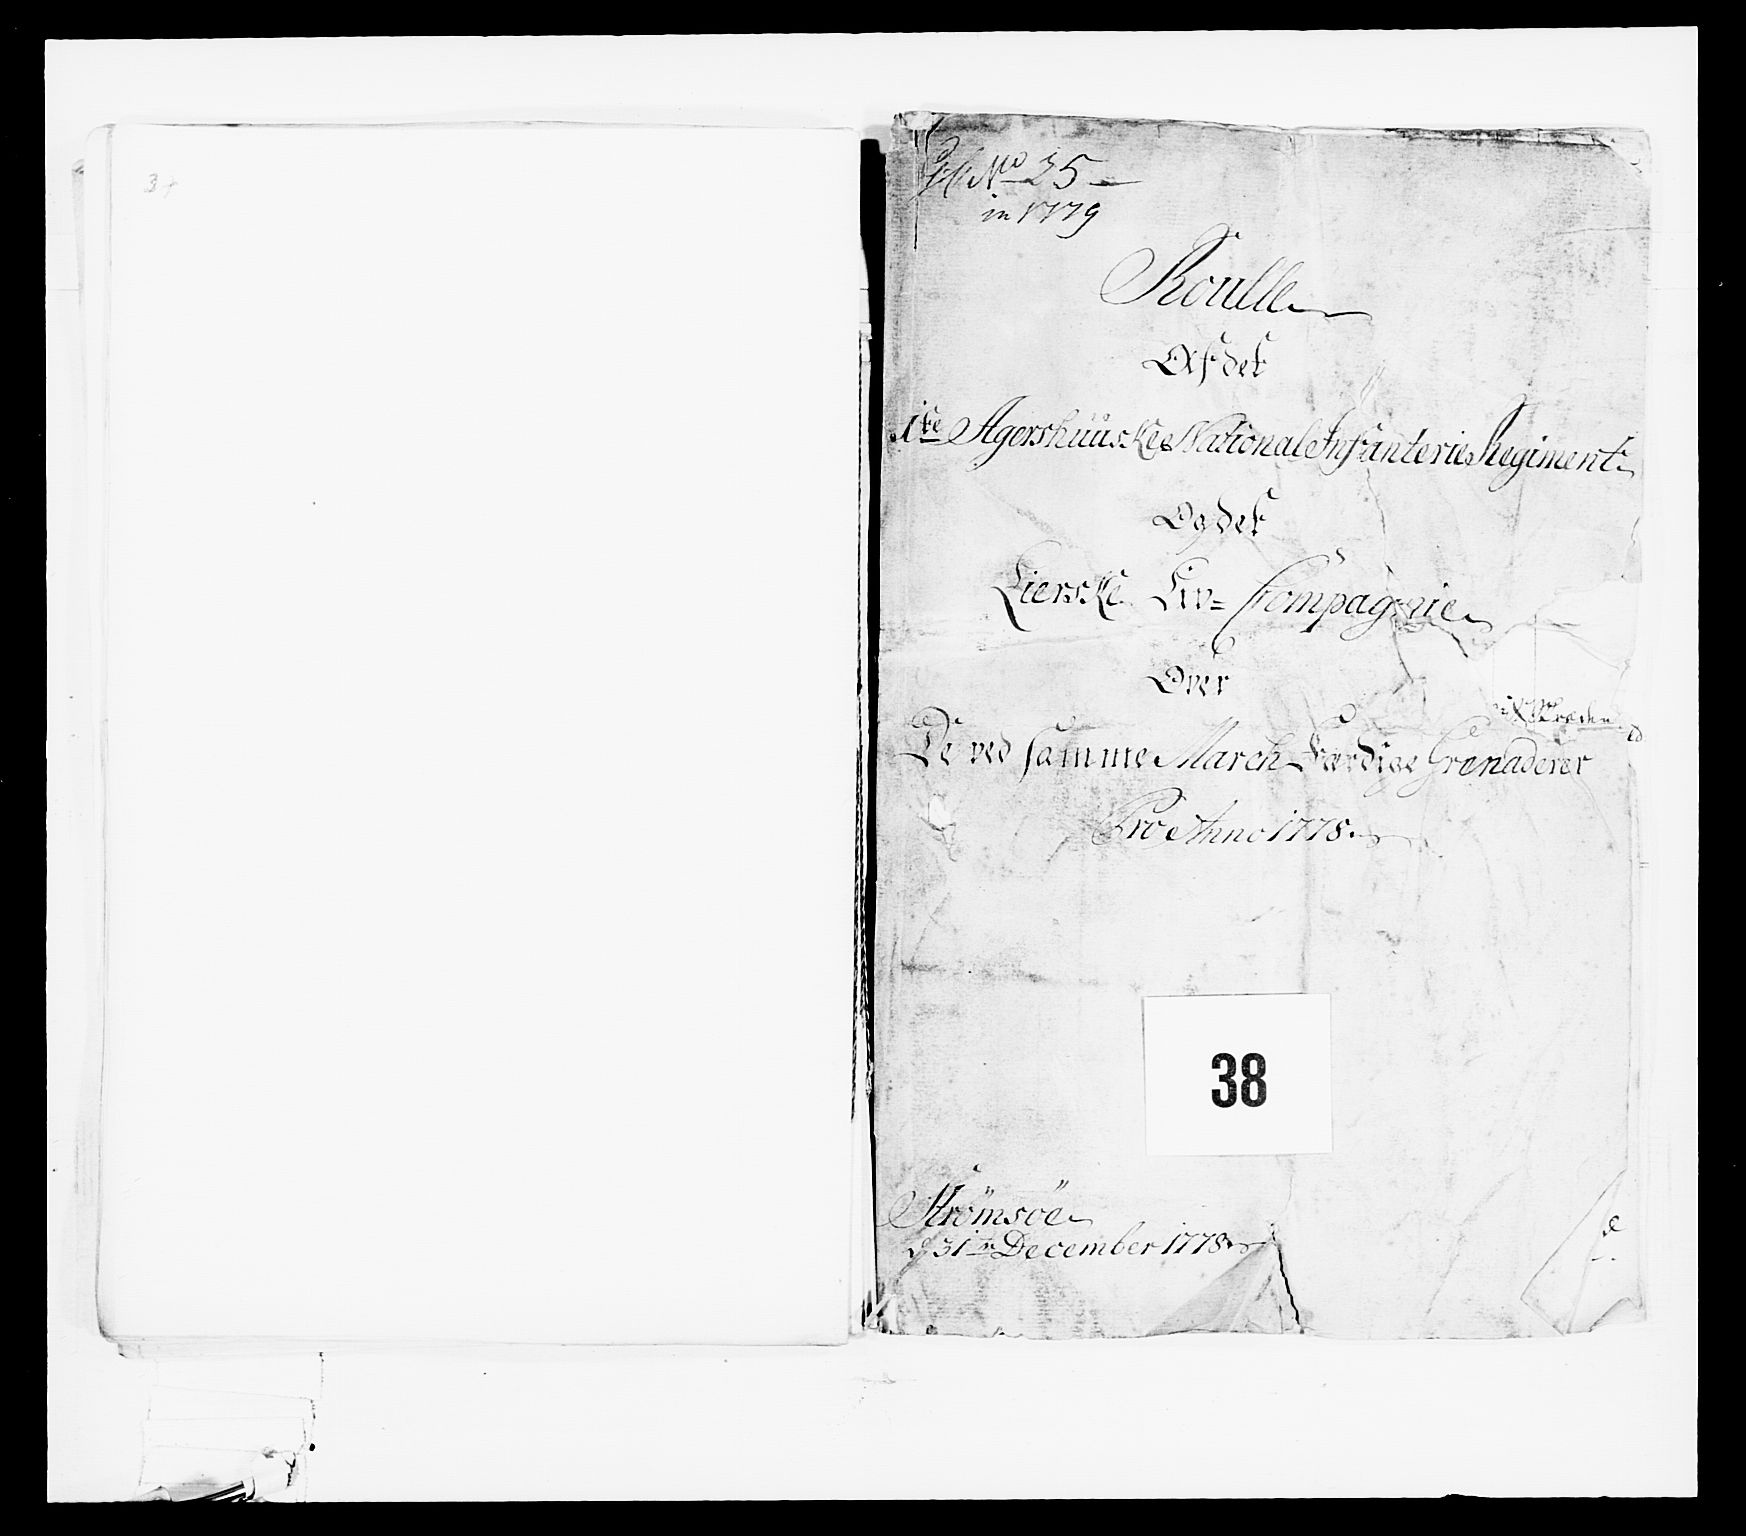 No 25
in 1779
Roulle
Af det
1te Agershuuske National Infanterie Regiment
Og det
Lierske Liv= Compagnie
Over
De ved samme March Færdige Grenaderer
Pro Anno 1778
38
Strömsöe
d 31te December 1778